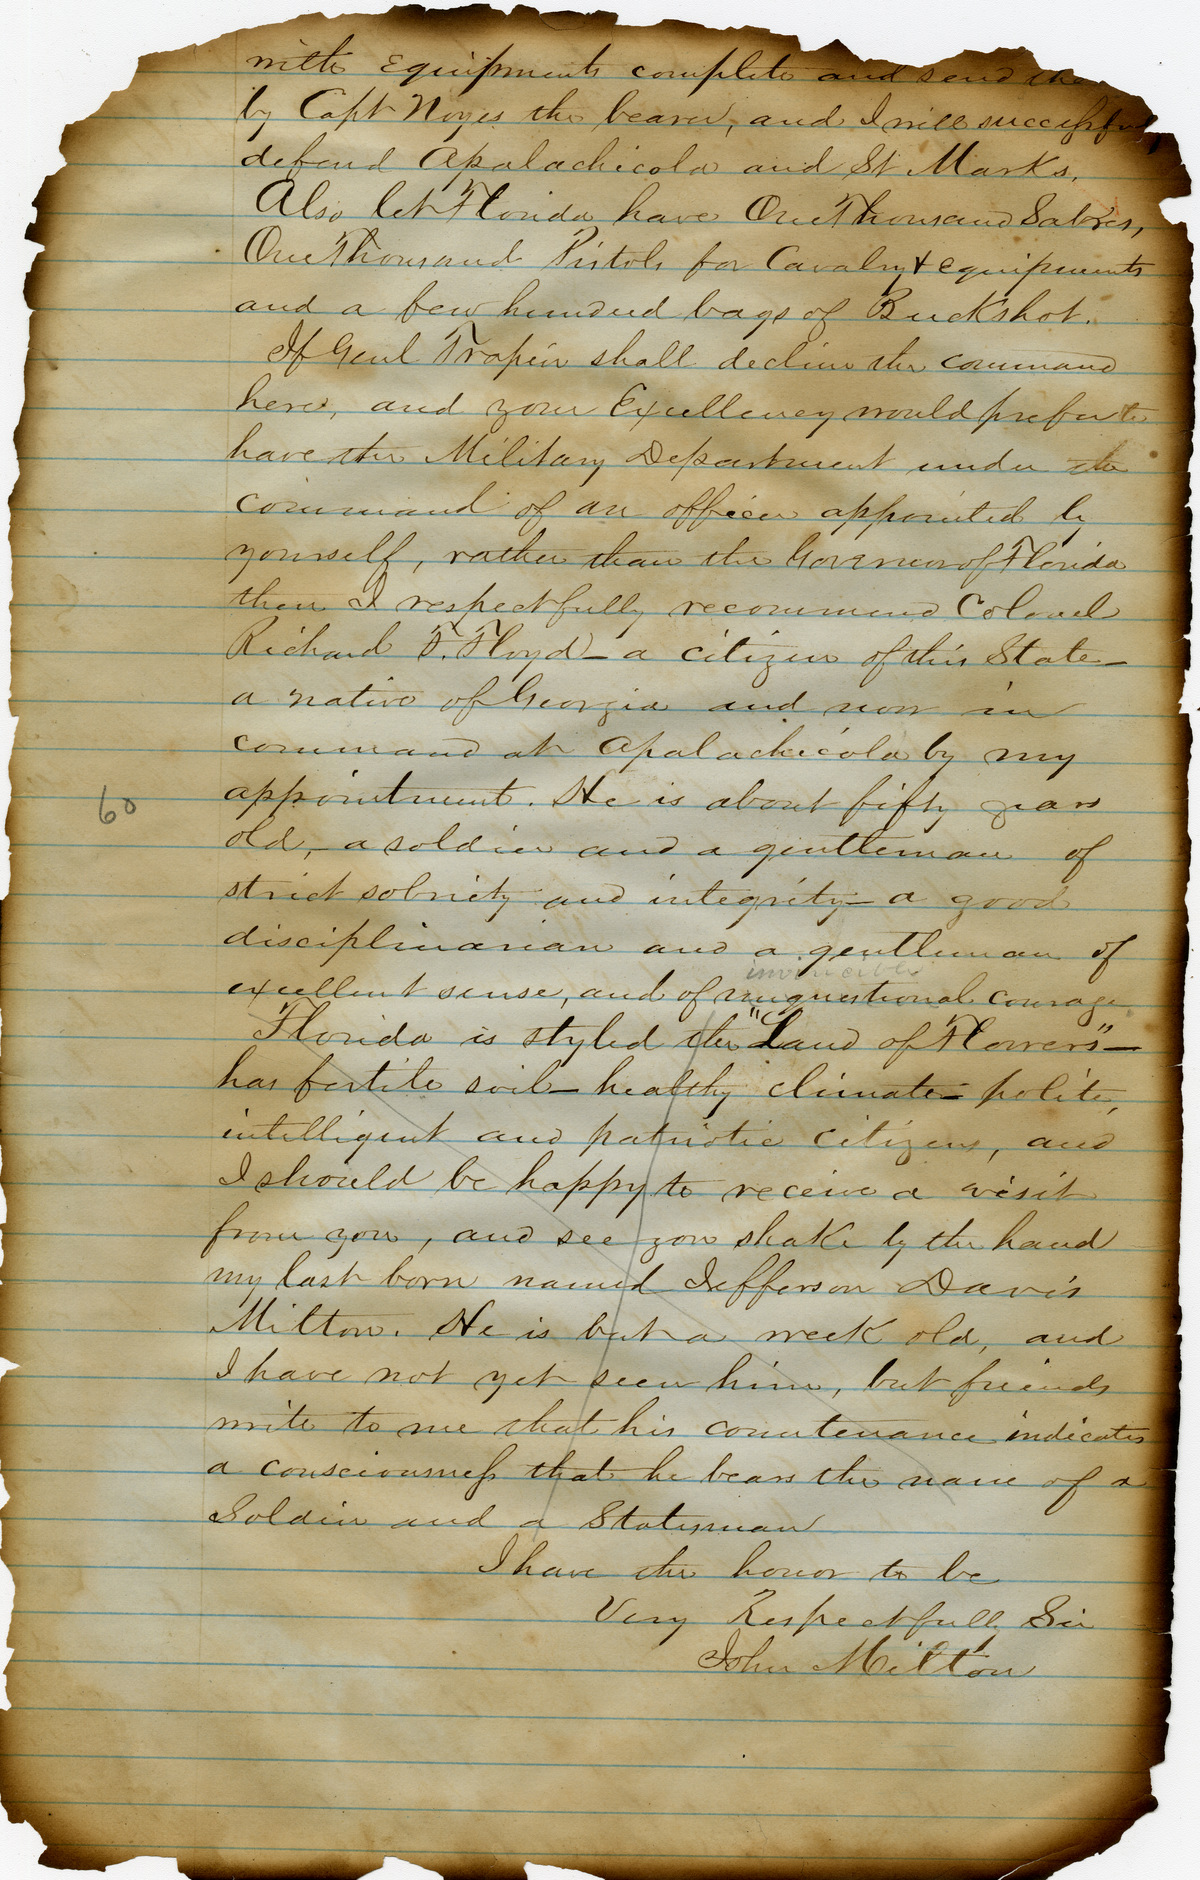 with Equipments complete and send the
by Capt Noyes the bearer, and I will successfully
defend Apalachicola and St Marks.
Also let Florida have One Thousand Sabres,
One Thousand Pistols for Cavalry & equipments
and a few hundred bags of Buckshot.
If Genl Trapier shall decline the command
here, and your Excellency would prefer to
have the Military Department under the
command of an officer appointed by
yourself, rather than the Governor of Florida
then I respectfully recommend Colonel
Richard F. Floyd_ a citizen of this State_
a native of Georgia and now in
command at Apalachicola by my
appointment. He is about fifty years
60
old, _ a soldier and a gentleman of
strict sobriety and integrity_ a good
disciplinarian and a gentleman of
invincible
excellent sense, and of unquestional courage
Florida is styled the "Land of Flowers"_
has fertile soil_ healthy climate_ polite,
intelligent and patriotic citizens, and
I should be happy to receive a visit
from you, and see you shake by the hand
my last born named Jefferson Davis
Milton. He is but a week old, and
I have not yet seen him, but friends
write to me that his countenance indicates
a consciousness that he bears the name of a
Soldier and a Statesman
I have the honor to be
Very Respectfully Sir
John Milton